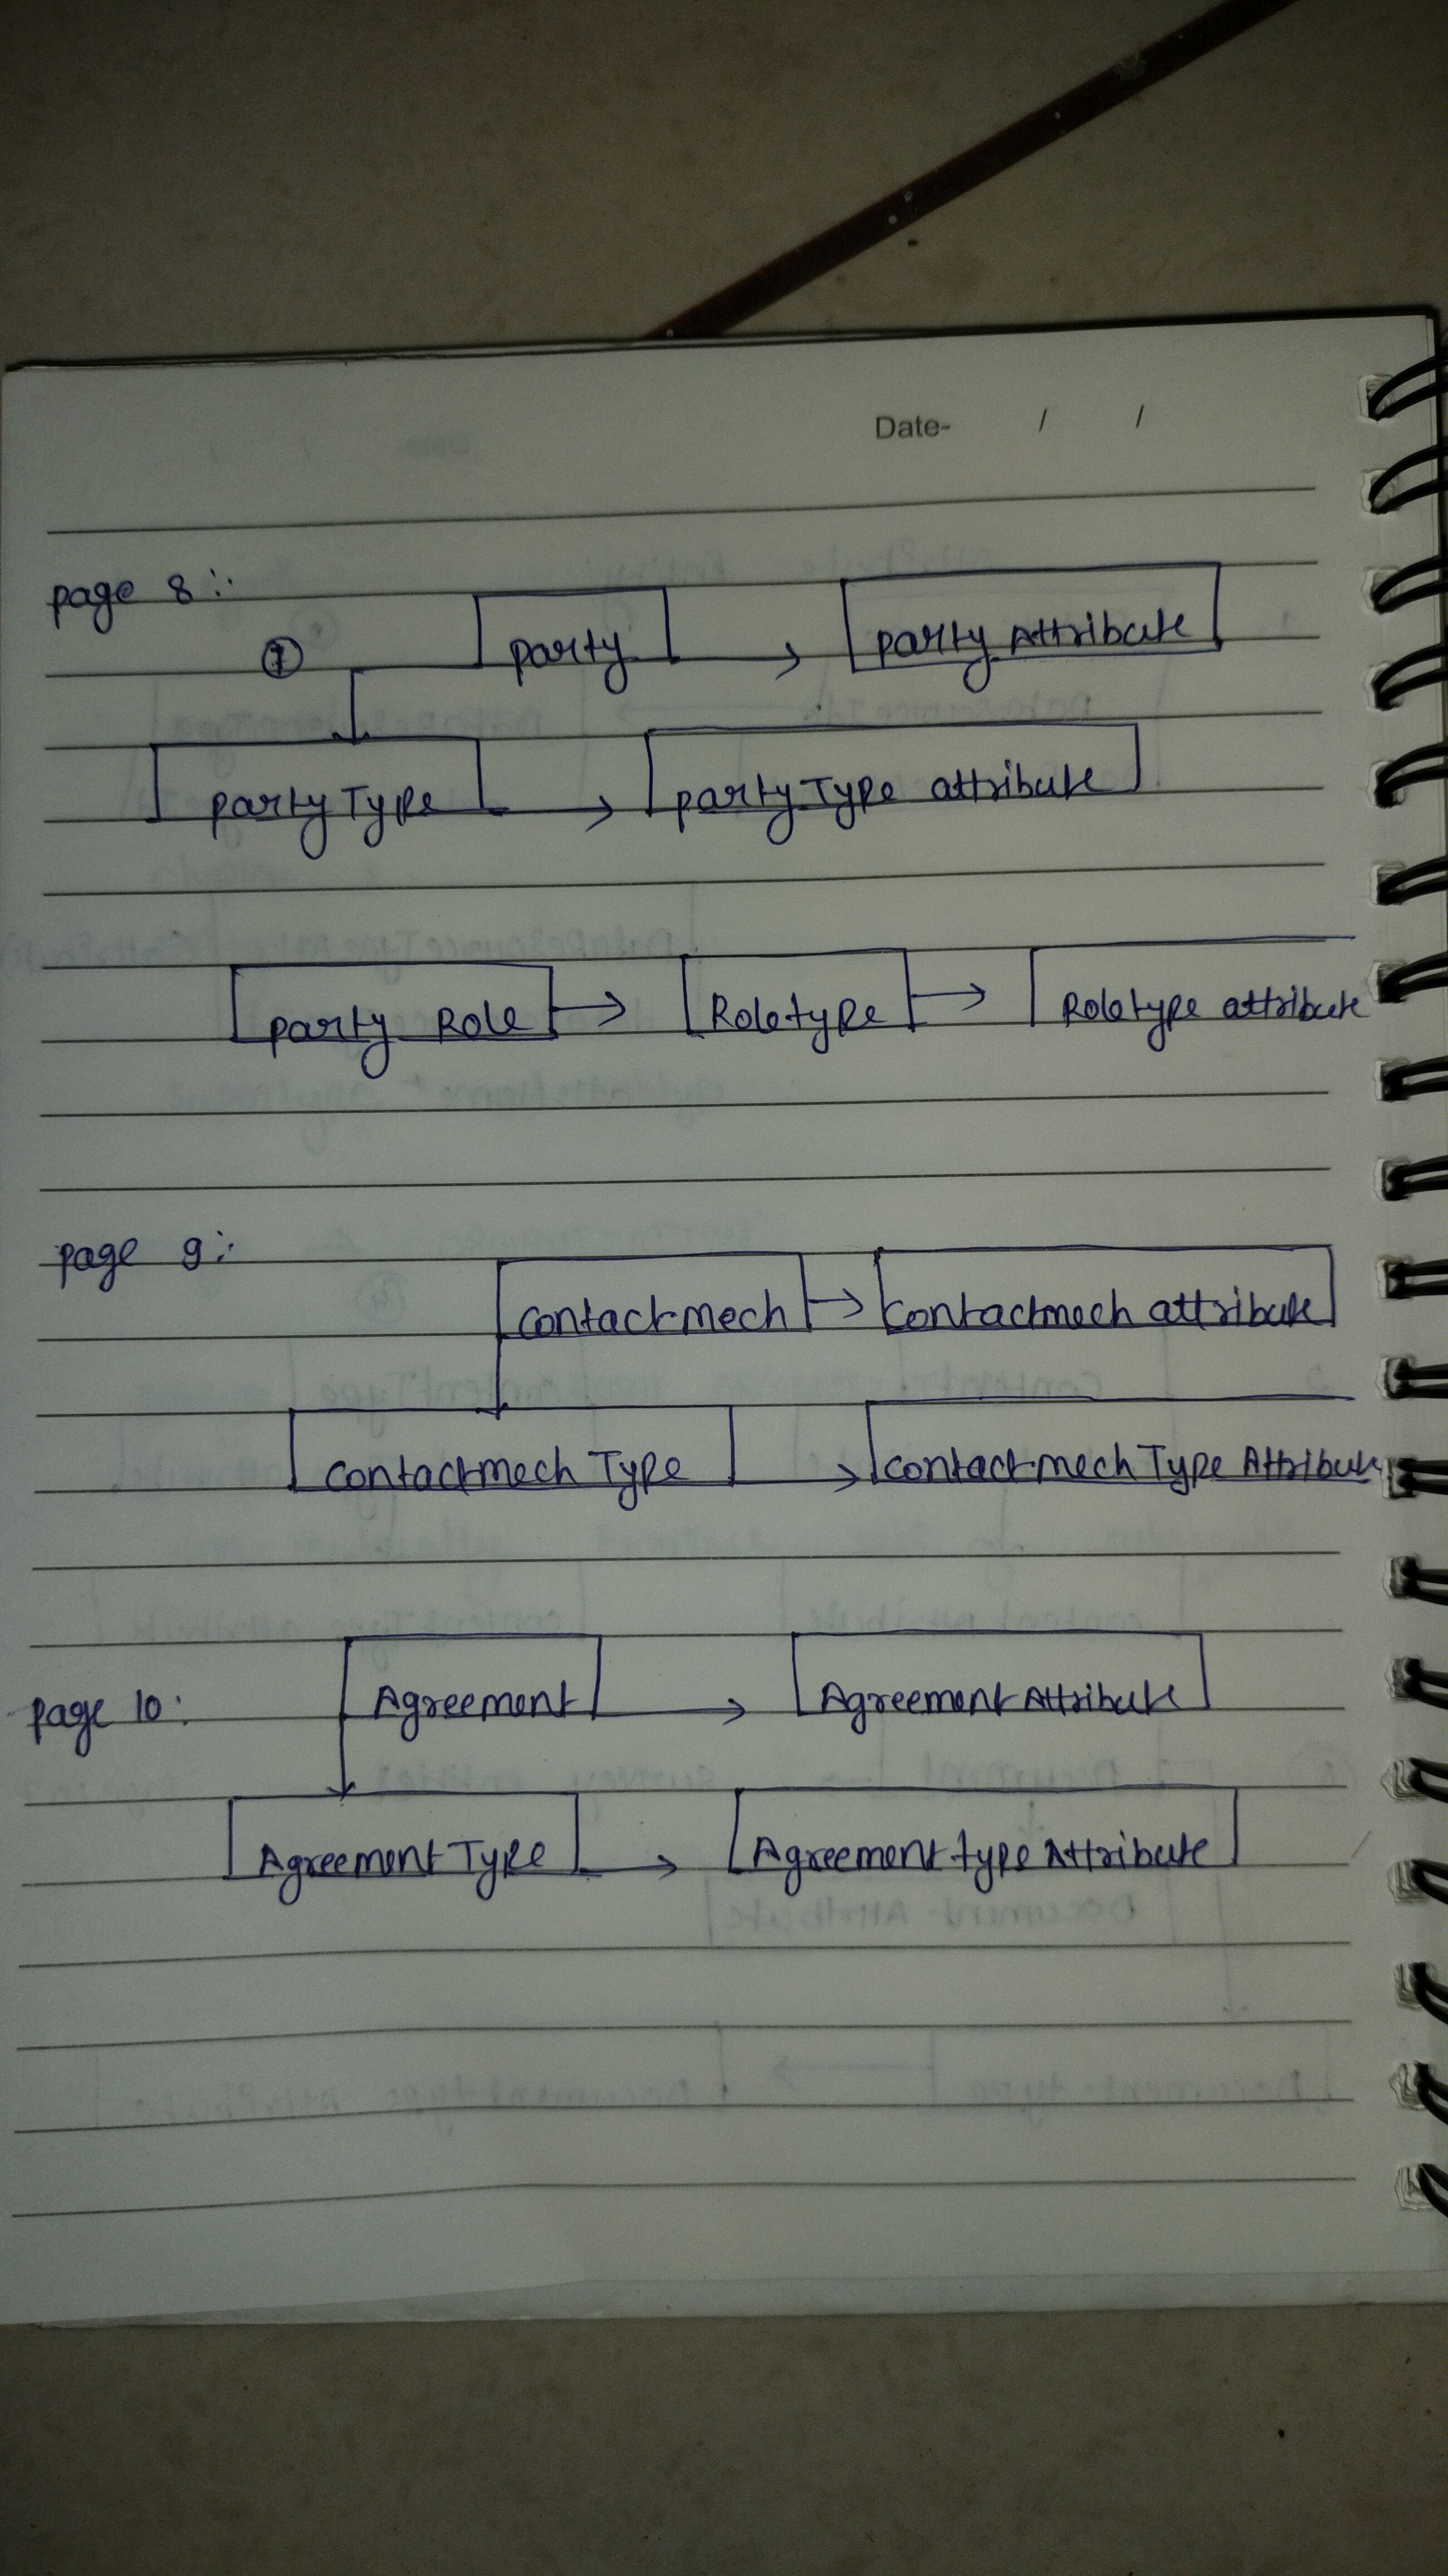 Date- / /
page 8 :
① party → party Attribute
partyType → partyType attribute
party Role → Roletype → Roletype attribute
page 9 :
contactmech → contactmech attribute
contactmech Type → contactmech Type Attribute
page 10 : Agreement → Agreement Attribute
Agreement Type → Agreement type Attribute